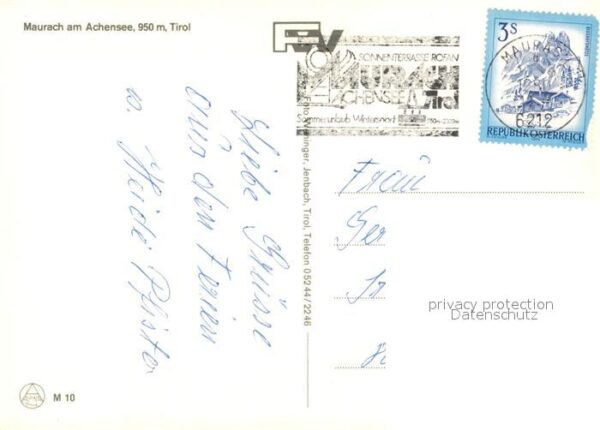 Maurach am Achensee, 950 m, Tirol
SONNENTERRASSE ROFAN
MAURACH
ACHENSEE Tirol
Sommerurlaub Wintersport
3 S
REPUBLIK ÖSTERREICH
MAURACH
6212
liebe Grüsse
aus den Ferien
Heidi Pfister
Jenbach, Tirol, Telefon 05244/2246
Frau
privacy protection
Datenschutz
M 10